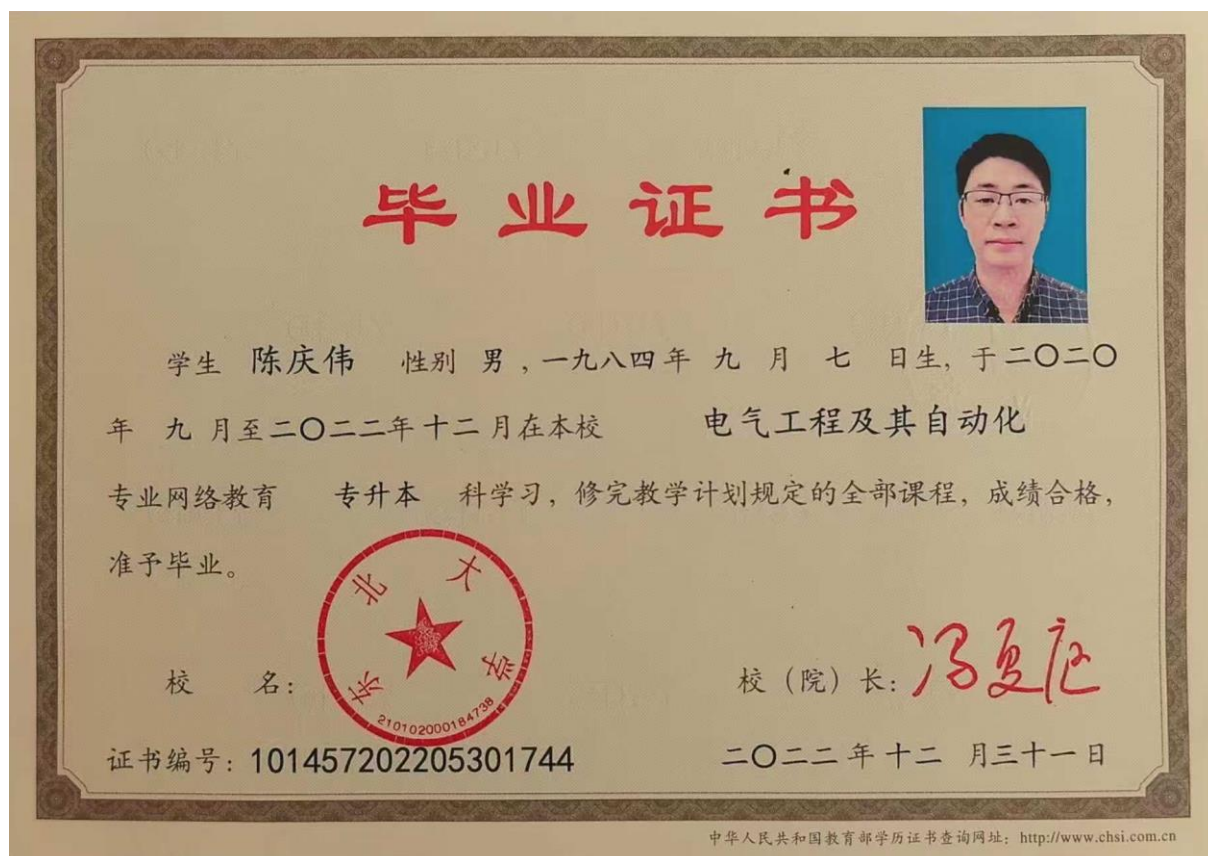 毕业证书
学生 陈庆伟 性别 男，一九八四年 九 月 七 日生，于二〇二〇
年 九 月至二〇二二年十二月在本校 电气工程及其自动化
专业网络教育 专升本 科学习，修完教学计划规定的全部课程，成绩合格，
准予毕业。
东北大学
210102000184738
校 名：
校（院）长：冯夏庭
证书编号：101457202205301744
二〇二二年十二 月三十一日
中华人民共和国教育部学历证书查询网址：http://www.chsi.com.cn